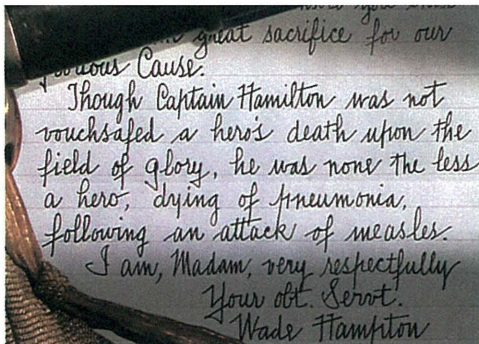 great sacrifice for our
Cause.
Though Captain Hamilton was not
vouchsafed a hero's death upon the
field of glory, he was none the less
a hero, dying of pneumonia,
following an attack of measles.
I am, Madam, very respectfully
Your obt. Servt.
Wade Hampton